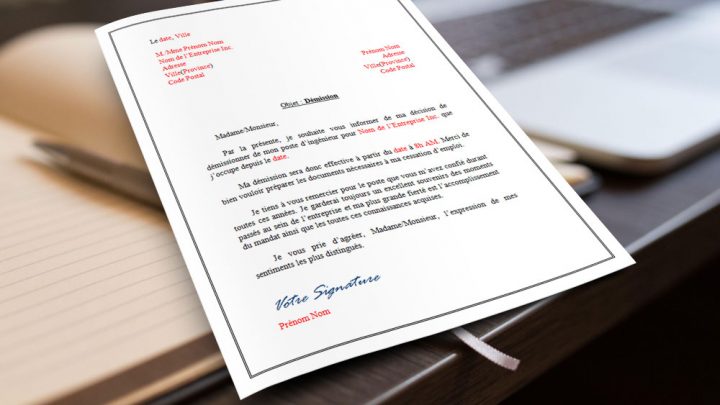 Le date, Ville
M./Mme Prénom Nom
Nom de l'Entreprise Inc.
Adresse
Ville(Province)
Code Postal
Prénom Nom
Adresse
Ville(Province)
Code Postal
Objet : Démission
Madame/Monsieur,
Par la présente, je souhaite vous informer de ma décision de
démissionner de mon poste d'ingénieur pour Nom de l'Entreprise Inc. que
j'occupe depuis le date.
Ma démission sera donc effective à partir du date à 8h AM. Merci de
bien vouloir préparer les documents nécessaires à ma cessation d'emploi.
Je tiens à vous remercier pour le poste que vous m'avez confié durant
toutes ces années. Je garderai toujours un excellent souvenirs des moments
passés au sein de l'entreprise et ma plus grande fierté est l'accomplissement
du mandat ainsi que les toutes ces connaissances acquises.
Je vous prie d'agréer, Madame/Monsieur, l'expression de mes
sentiments les plus distingués.
Votre Signature
Prénom Nom